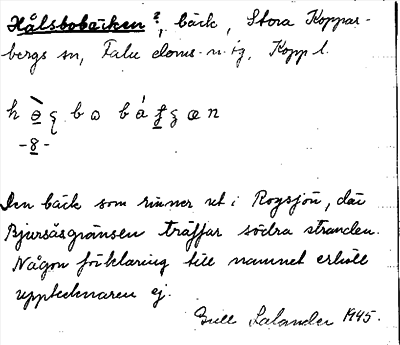 Hålsbobäcken?, bäck, Stora Koppar-
bergs sn, Falu doms. n. tg, Kopp l.
-8-
Den bäck som rinner ut i Rogsjön, där
Bjursåsgränsen träffar södra stranden.
Någon förklaring till namnet erhöll
upptecknaren ej.
Salander 1945.